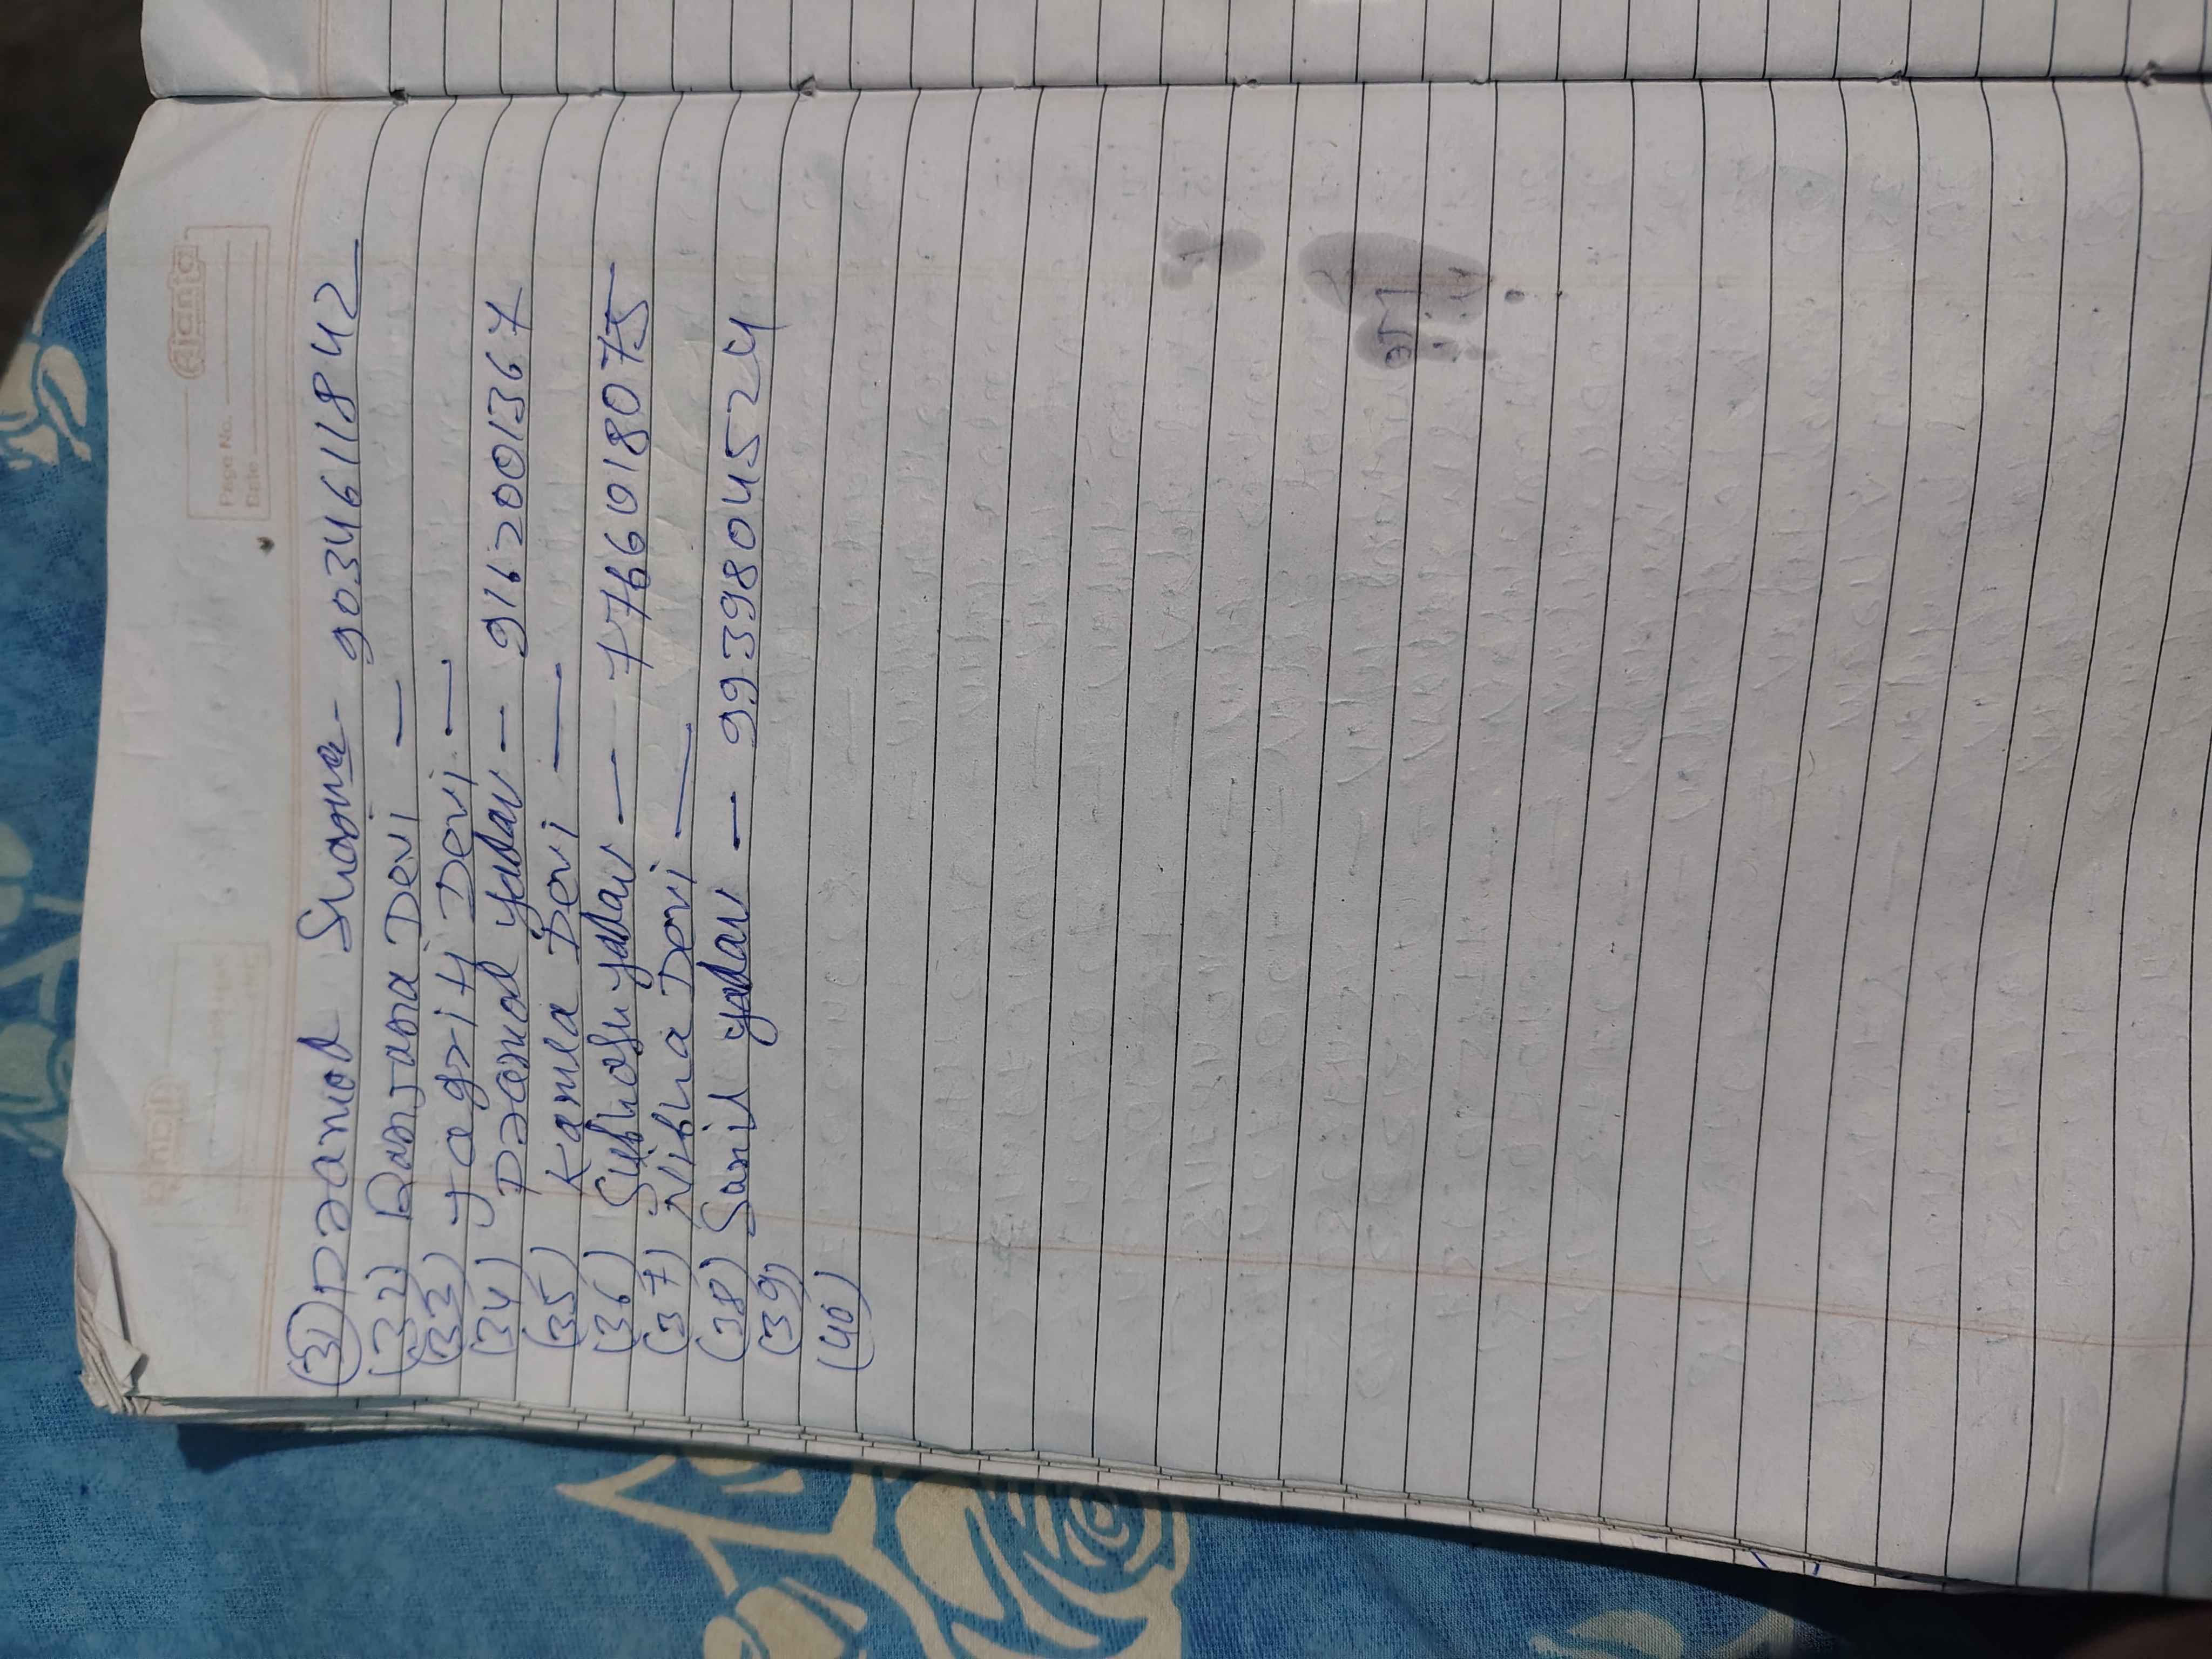 Ajanta
Page No.
Date
(31) Pramod Sharma - 9034611842
(32) Ranjana Devi —
(33) Jagriti Devi —
(34) Pramod yadav - 9162001367
(35) Kamla Devi —
(36) Subhash yadav - 7766018075
(37) Nibha Devi —
(38) Sunil yadav - 9939804524
(39)
(40)